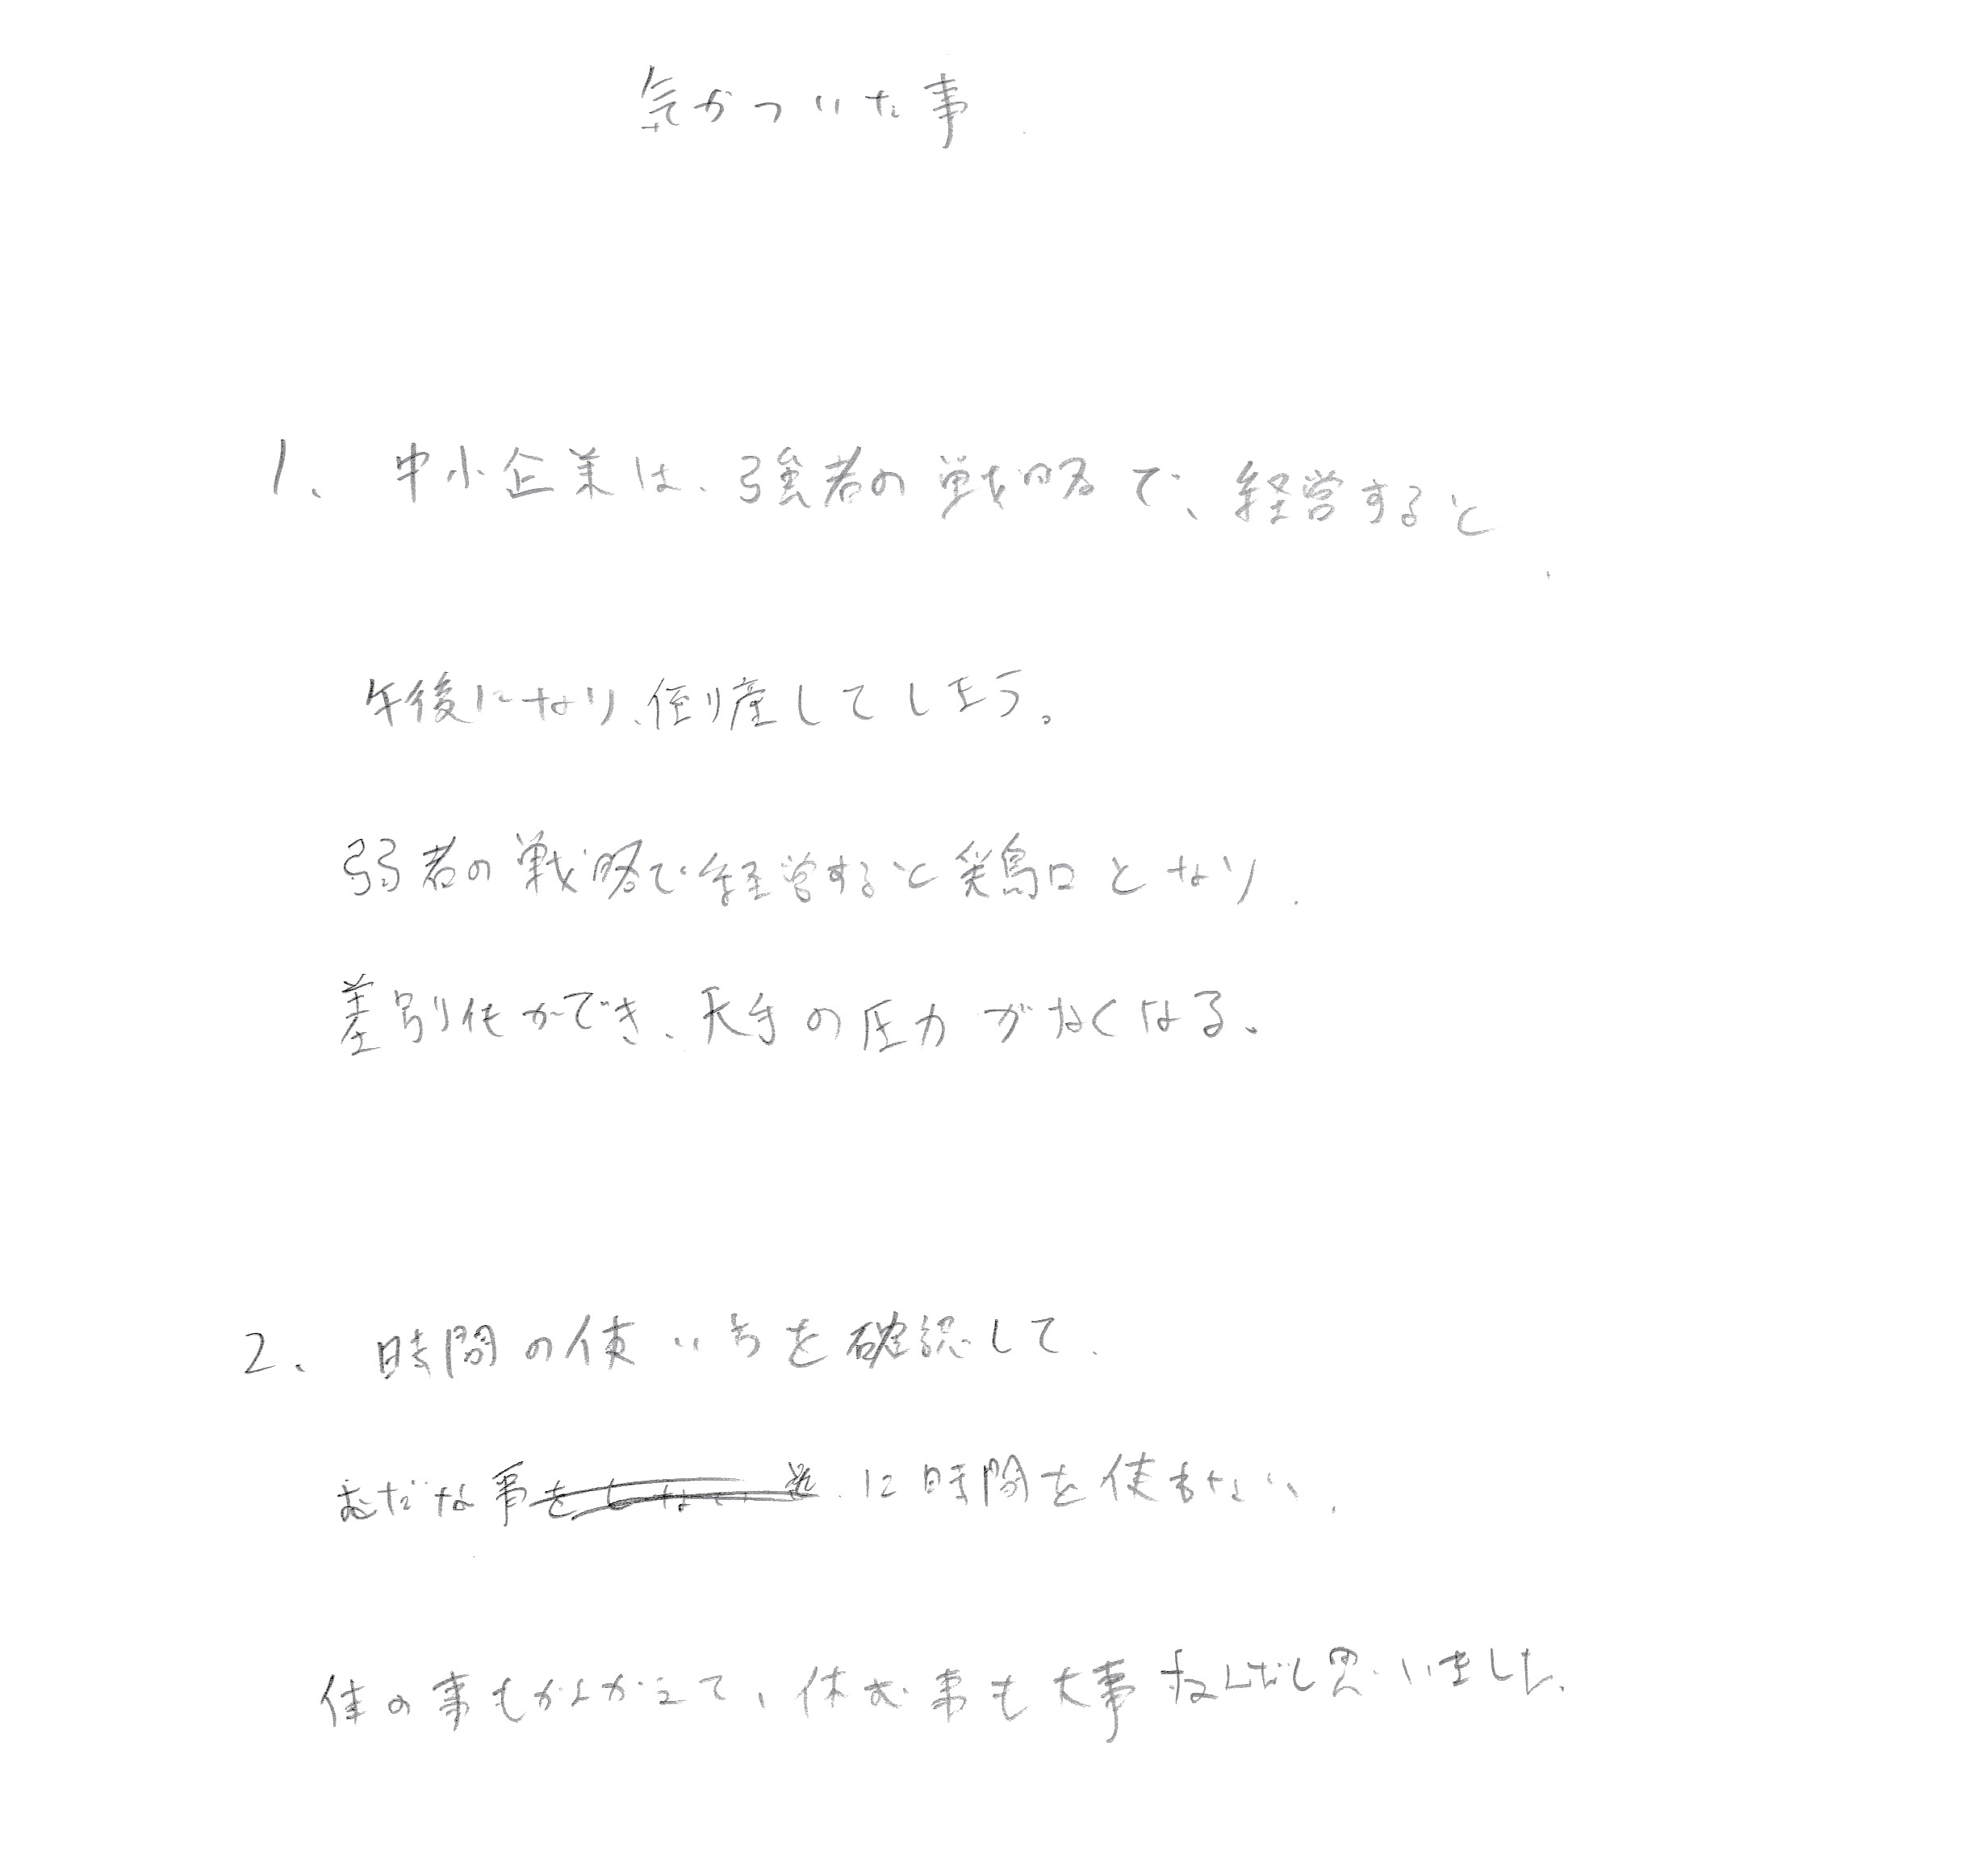 気がついた事
1、中小企業は、強者の戦略で、経営すると
午後になり、倒産してしまう。
弱者の戦略で経営すると鶏口となり
差別化ができ、大手の圧力がなくなる。
2、時間の使い方を確認して
むだな事に時間を使わない、
体の事もかんがえて、休む事も大事なんだと思いました。